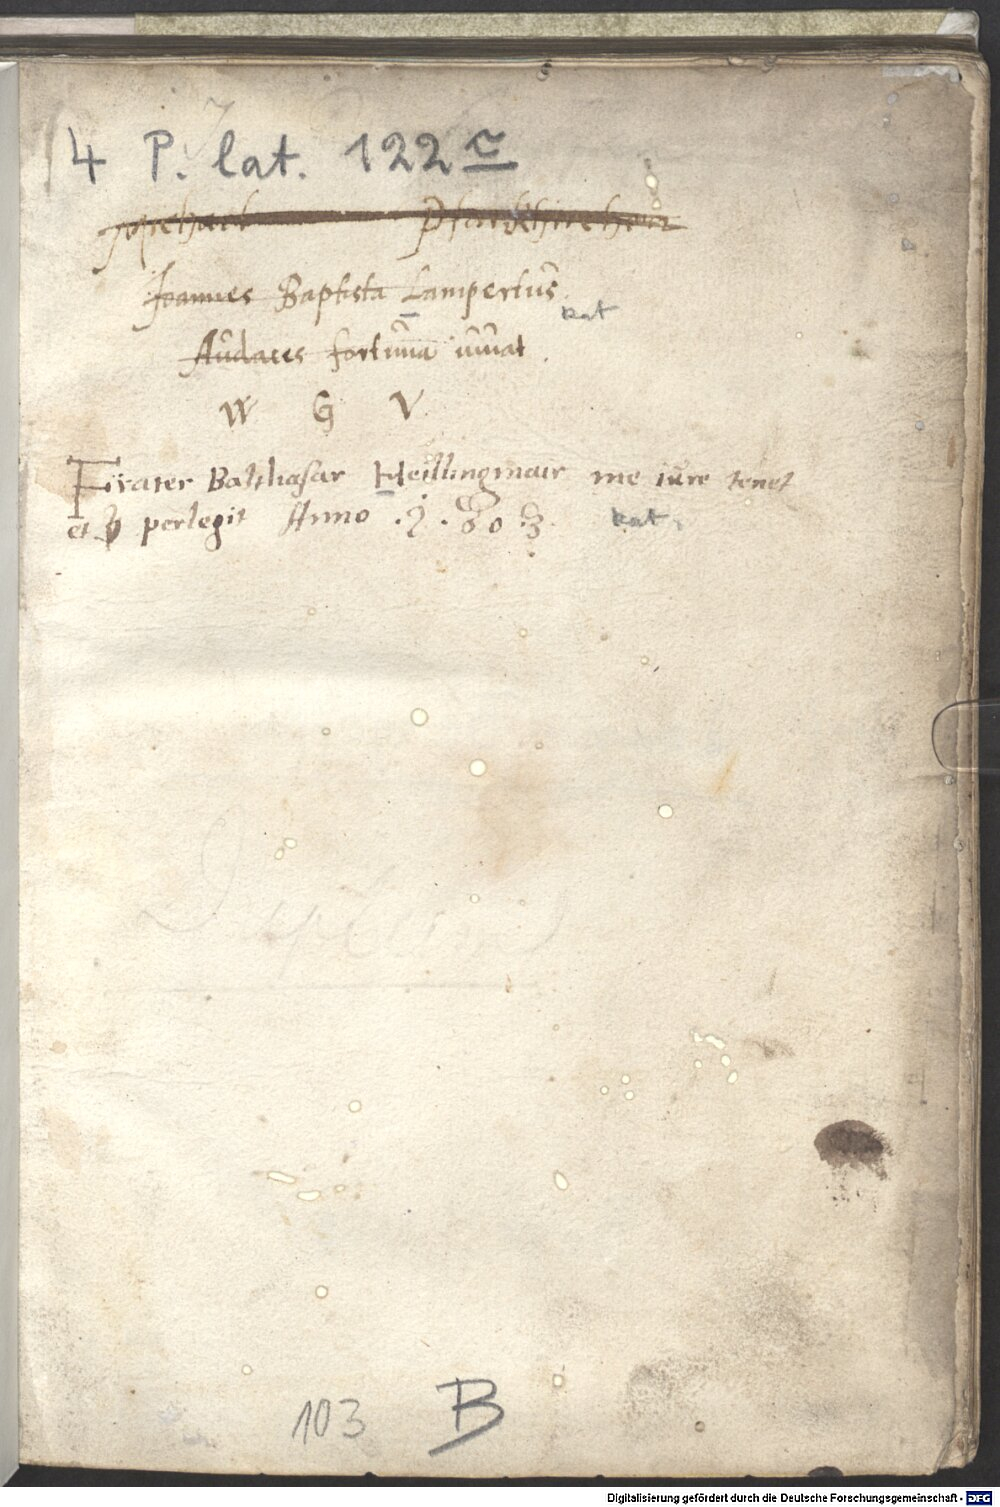 4 P. lat. 122 c
Michael Pfarkhircher
Joannes Baptista Lampertus
kat
Audaces fortuna iuuat.
W G V
Frater Balthasar Heillingmair me iure tenet
et perlegit Anno
kat.
103 B
Digitalisierung gefördert durch die Deutsche Forschungsgemeinschaft - DFG